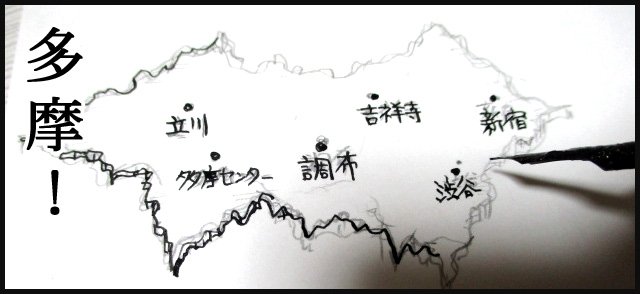 多摩！
立川
吉祥寺
新宿
多摩センター
調布
渋谷